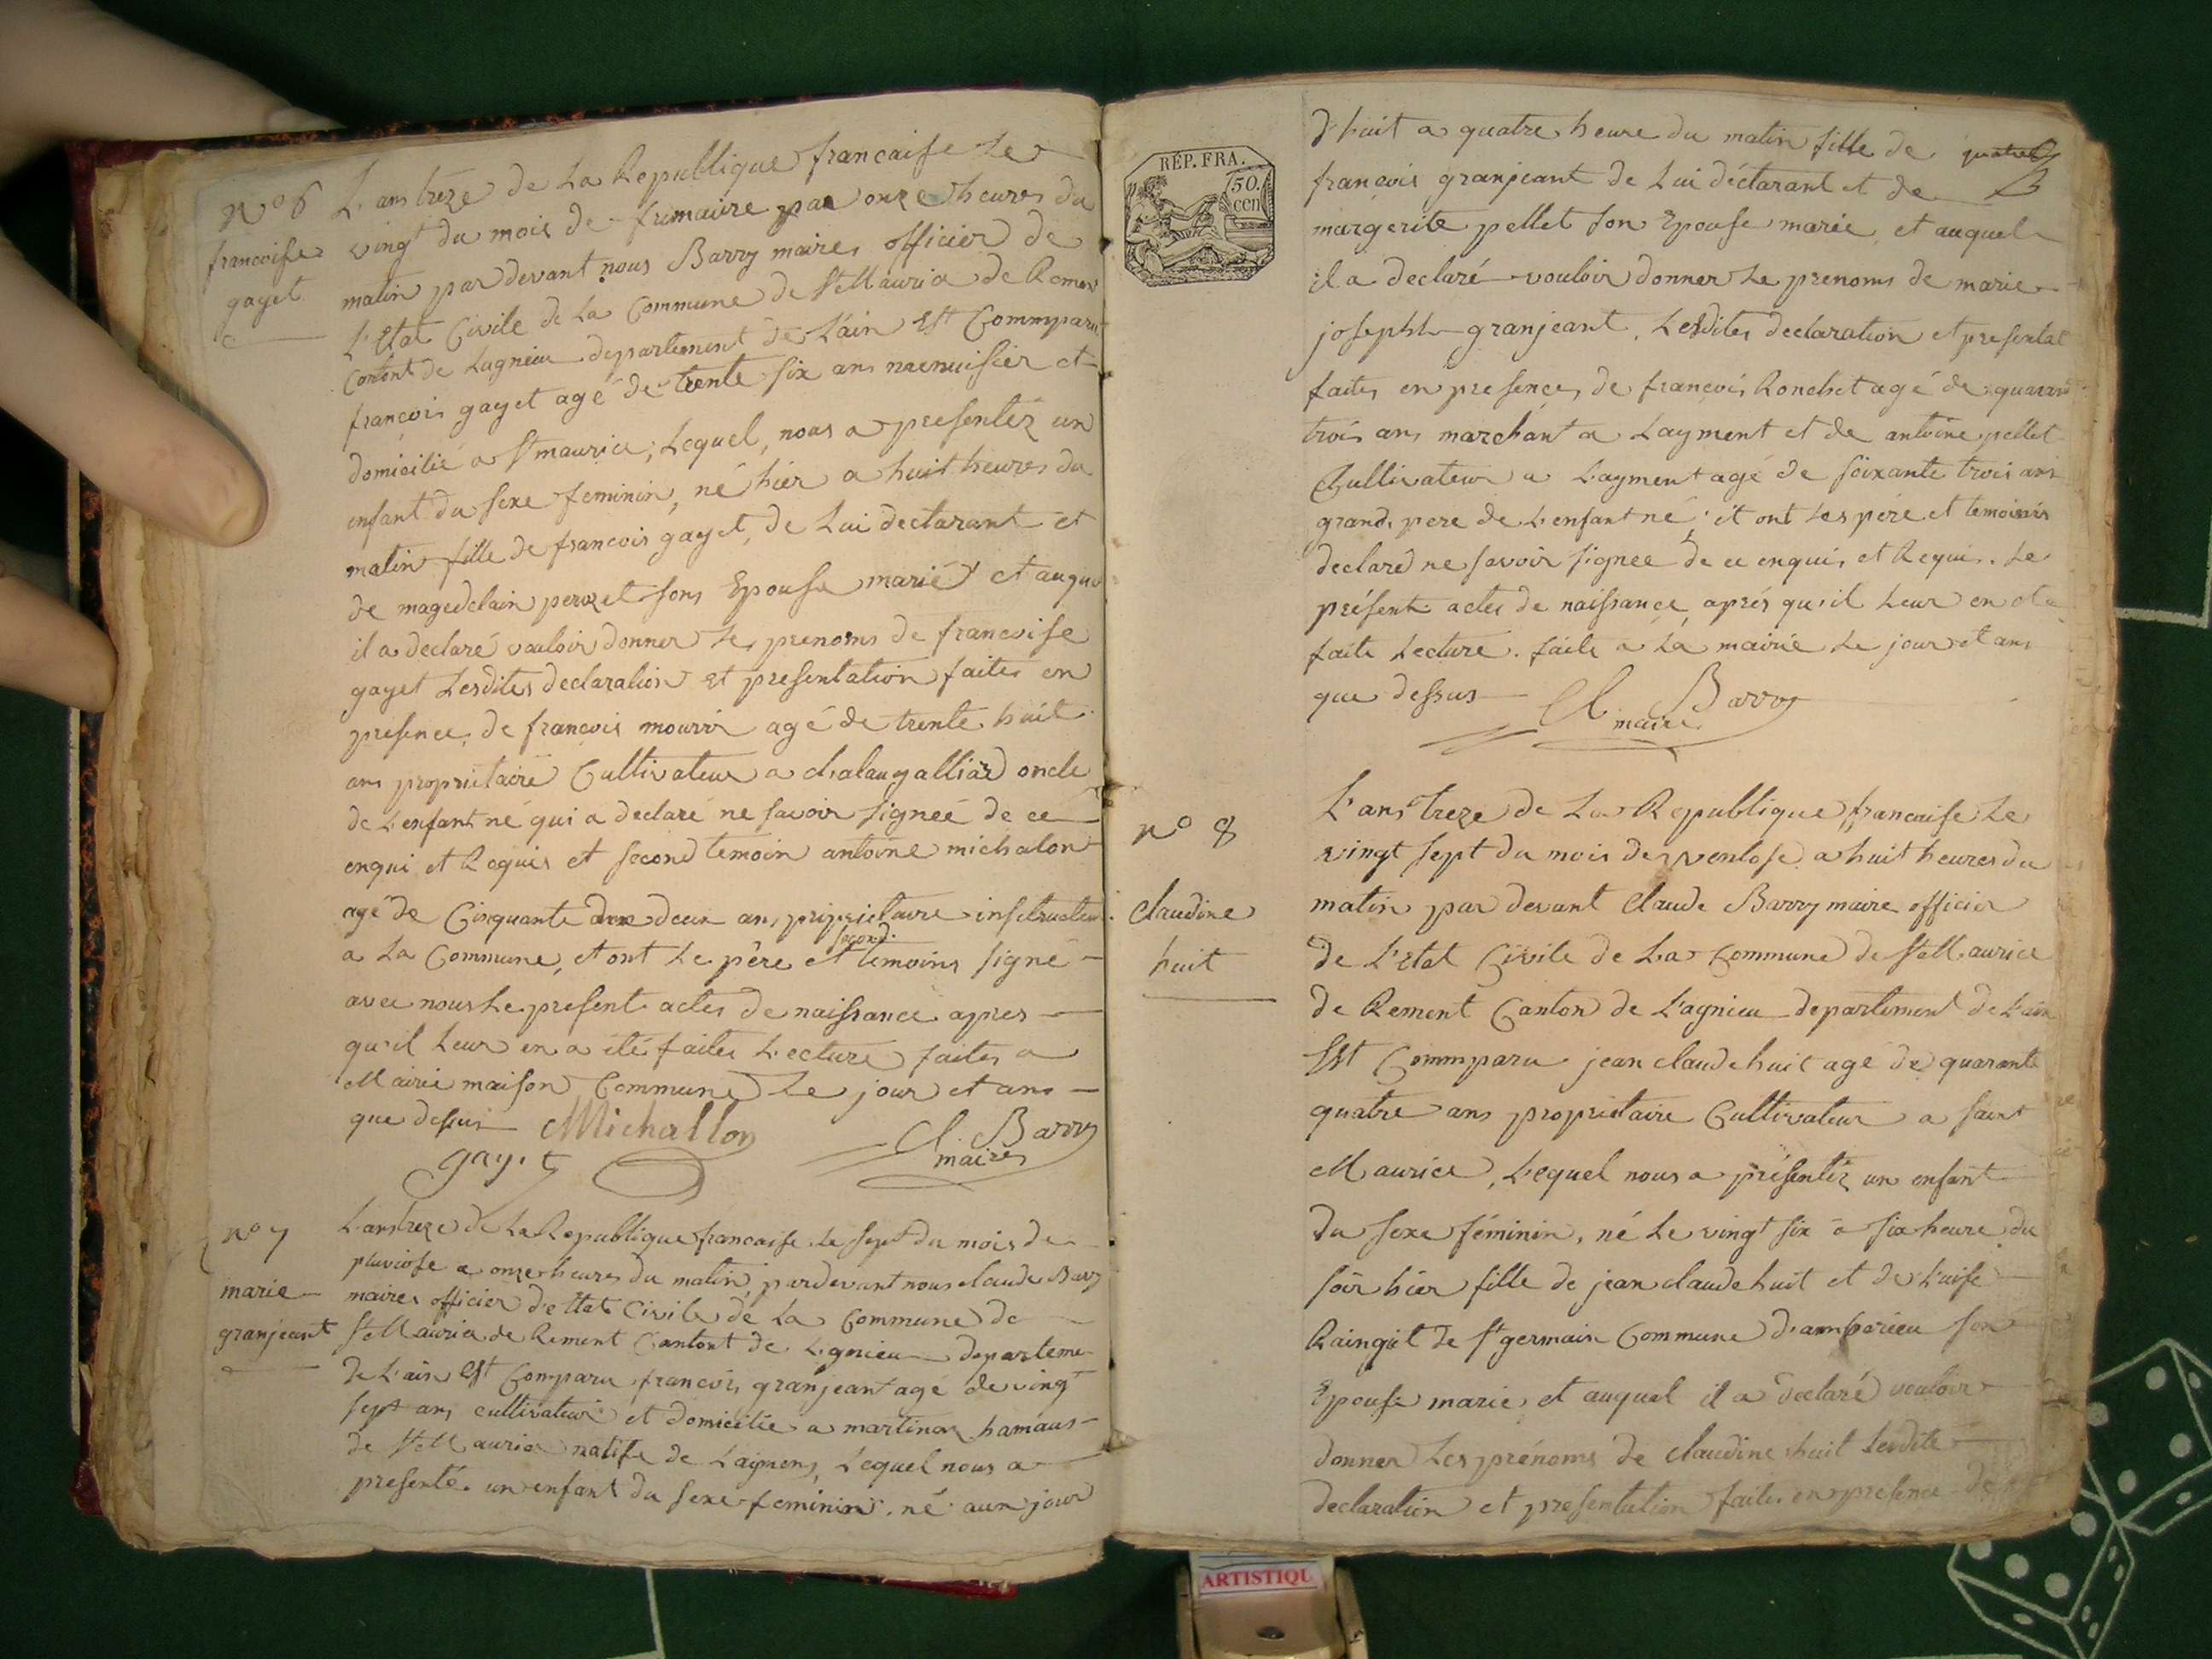 N° 6
francoise
gayet
L'ans treze de La Republique francaise Le
vingt du mois de frimaire par onze heures du
matin par devant nous Barry maire officier de
L'Etat Civile de La Commune de St Mauria de Remen
Contont de Lagnieu departement de L'ain Est Commparu
francois gayet agé de trente six ans menuisier et
domicilié a St maurice, Lequel, nous a presentéz un
enfant du sexe feminin, né hier a huit heures du
matin fille de francois gayet, de Lui declarant et
de magedelain perozet sons Epouse marié et auque
il a declaré vouloir donner Les prenoms de francoise
gayet Lesdites declaration Et presentation faites en
presence, de francois mourrir agé de trente huit
ans proprietaire Cultivateur a chalaugalliard oncle
de L'enfant né qui a declaré ne savoir signeé de ce
enqui et Requis et second temoin antoine michalon
agé de Cinquante deux ans, propriotaire instructeur
a La Commune, et ont Le pêre et second temoins signé
avec nous Le present actes de naissance apres
qu'il Leur en a été faites Lecture faites a
Mairie maison Commune Le jour et ans
que dessus Michallon
gayet
Cl. Barry
maire
N° 7
marie
granjeant
L'ans treze de La Republique francaise le sept du mois de
pluviose a onze heures du matin, par devant nous claude Barry
maires officier d'Etat Civile de La Commune de
St Mauria de Rement Cantont de Lagnieu departeme
de L'ain Est Comparu francois granjeant agé de vingt
sept ans cultivateur et domicilié a martinaz hamaus
de St Mauria natife de Laiment, Lequel nous a
presenté un enfant du sexe feminin né aun jour
RÉP. FRA.
50.
cen
d'huit a quatre heure du matin fille de
francois granjeant de Lui déclarant et de
margerite pellet son Epouse marié, et auquel
il a declaré vouloir donner Le prenoms de marie
josephte granjeant, Lesdites declaration et presentat
faites en presence, de francois Ronchet agé de quarant
trois ans marchant a Layment et de antoine pellet
Cultivateur a Layment agé de soixante trois ans
grand pere de L'enfant né, et ont Les pére et temoins
declaré ne savoir signee de ce enquis et Requis. Le
présent actes de naissance, aprés qu'il Leur en a été
faite Lecture. faite a La mairie Le jour et ans
que dessus
Cl. Barry
maire
N° 8
claudine
huit
L'ans treze de La Republique francaise Le
vingt sept du mois de ventose a huit heures du
matin par devant Claude Barry maire officier
de L'Etat Civile de La Commune de St Maurice
de Rement Canton de L'agnieu departement de L'ain
Est Commparu jean claude huit agé de quarante
quatre ans propriétaire Cultivateur a saint
Maurice, Lequel nous a présentéz un enfant
du sexe féminin, né Le vingt six a six heure du
soir hier fille de jean claude huit et de Luise
Raingit de St germain Commune d'amberieu son
Epouse marie, et auquel il a declaré vouloir
donner Les prénoms de claudine huit Lesdite
declaration et presentation faites en presence de
ARTISTIQU